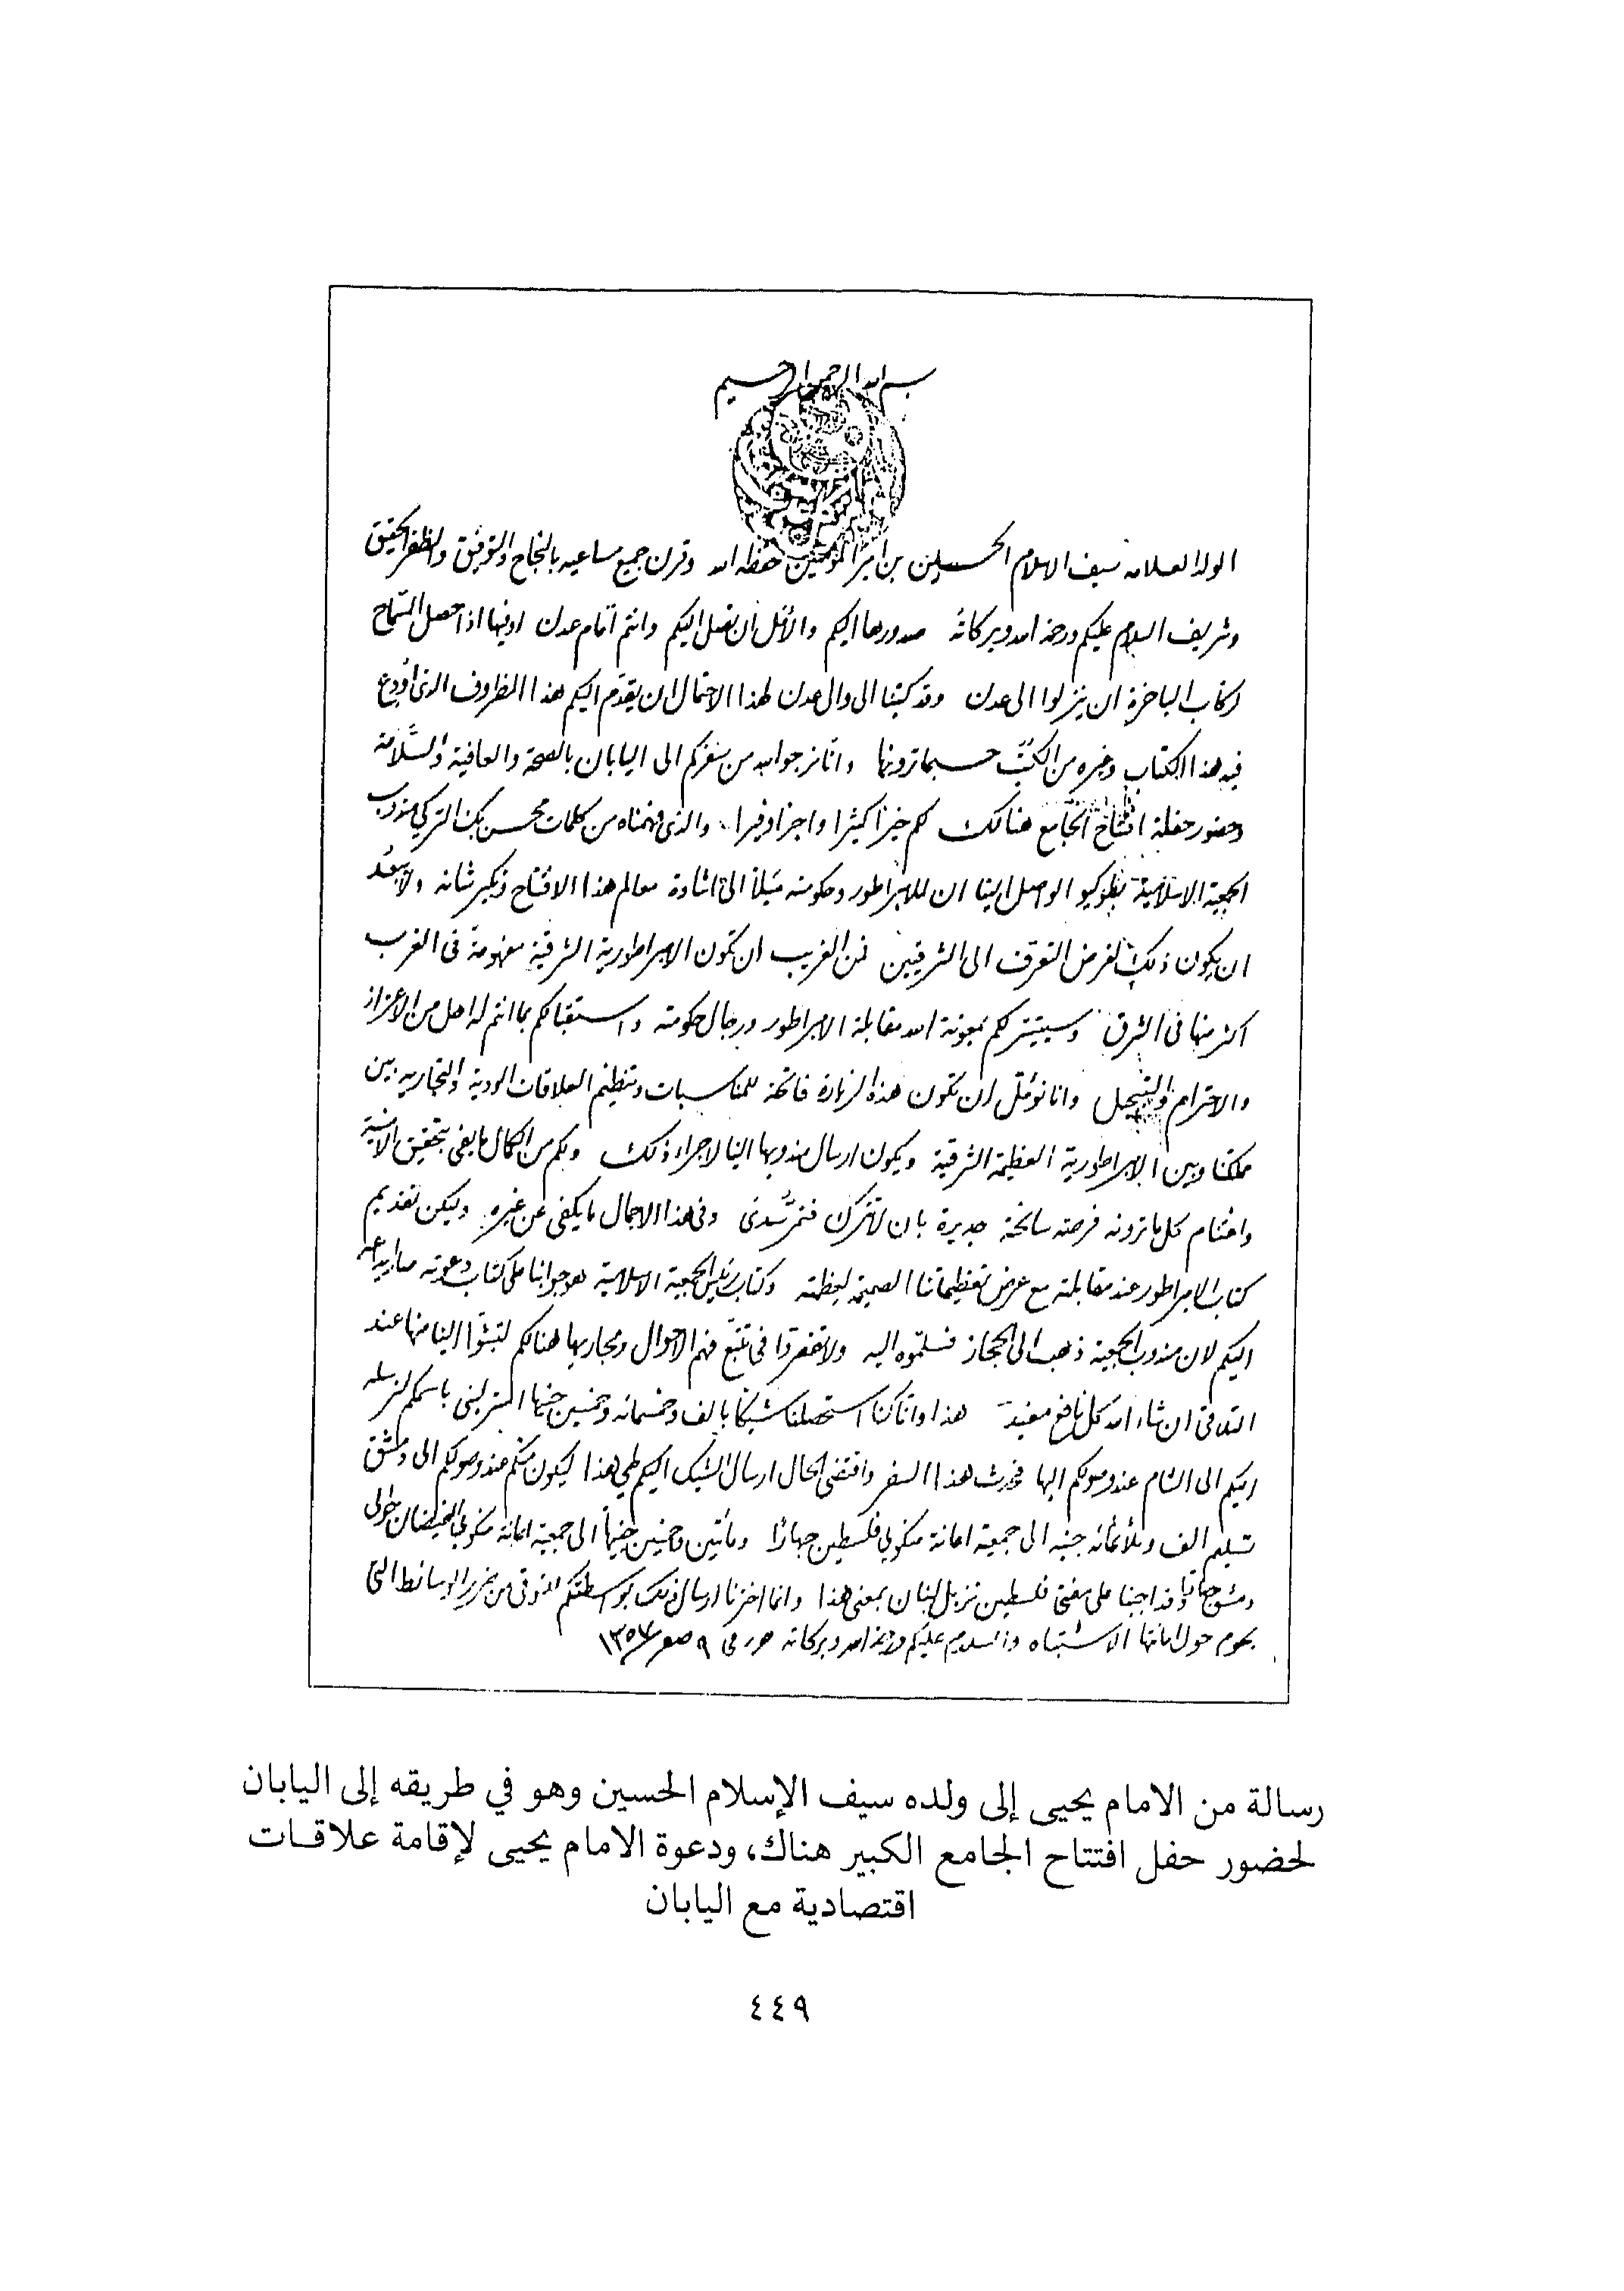 بسم الله الرحمن الرحيم
الولد العلامه سيف الاسلام الحسين بن امير المؤمنين حفظه الله وقرن جميع مساعيه بالنجاح والتوفيق والظفر الحقيق
وشريف السلام عليكم ورحمة الله وبركاته صدورها اليكم والأمل أن تصل اليكم وانتم أمام عدن اوفيها اذا حصل السماح
ركاب الباخرة ان ينزلوا الى عدن وقد كتبنا الى والى عدن لهذا الاحتمال ان يقدم اليكم هذا المظروف الذى أودع
فيه هذا الكتاب وغيره من الكتب حسبما ترونها وانا نرجو الله من سفركم الى اليابان بالصحة والعافية والسلامة
وحضور حفلة افتتاح الجامع هنالك لكم خيرا كثيرا واجرا وفيرا، والذى فهمناه من كلمات محسن بك التركي مندوب
الجمعية الاسلامية بطوكيو الواصل الينا ان للامبراطور وحكومته ميلا الى اشادة معالم هذا الافتتاح وتكبير شانه ولا يبعد
ان يكون ذلك لغرض التعرف الى الشرقيين فمن الغريب ان تكون الامبراطورية الشرقية مفهومة فى الغرب
اكثر منها فى الشرق وسيتيسر لكم بمعونة الله مقابلة الامبراطور ورجال حكومته واستقبالكم بما انتم له اهل من الاعزاز
والاحترام والتبجيل وانا نؤمل ان تكون هذه الزيارة فاتحة للمناسبات وتنظيم العلاقات الودية والتجارية بين
مملكتنا وبين الامبراطورية العظيمة الشرقية ويكون ارسال مندوبها الينا لاجراء ذلك ولكم من الكمال ما يفى بتحقيق الامنية
واغتنام كل ما ترونه فرصه سانحة جديرة بان لا تترك فتمر سدى وفى هذا الاجمال ما يكفى عن غيره وليكن تقديم
كتاب الامبراطور عند مقابلته مع عرض تعظيماتنا الصميمة لعظمته وكتاب رئيس الجمعية الاسلامية هو جوابنا على كتاب دعوته
اليكم لان مندوب الجمعية ذهب الى الحجاز فسلموه اليه ولا تقصروا فى تتبع فهم الاحوال ومجاريها هنالكم لتبثوا الينا منها عند
التلاقى ان شاء الله كل نافع مفيد هذا وانا كنا استحصلنا شيكا بالف وخمسمائه وخمسين جنيها استرلينى باسمكم لنرسله
اليكم الى الشام عند وصولكم اليها فحدث هذا السفر واقتضى الحال ارسال الشيك اليكم طي هذا ليكون منكم عند وصولكم الى دمشق
تسليم الف وثلاثمائه جنيه الى جمعية اعانة منكوبي فلسطين جهارا ومأتين وخمسين جنيهاً الى جمعية اعانة منكوبي الفيضان بحوالى
دمشق جهاراً وقد اجبنا على مفتى فلسطين نزيل لبنان بمعنى هذا وانما اخرنا ارسال ذلك بواسطتكم للتوقى من تحرير الوسائط التى
يحوم حول امانتها الاشتباه والسلام عليكم ورحمة الله وبركاته حرر فى ٩ صفر ١٣٥٧
رسالة من الامام يحيى إلى ولده سيف الإسلام الحسين وهو في طريقه إلى اليابان
لحضور حفل افتتاح الجامع الكبير هناك، ودعوة الامام يحيى لإقامة علاقات
اقتصادية مع اليابان
٤٤٩